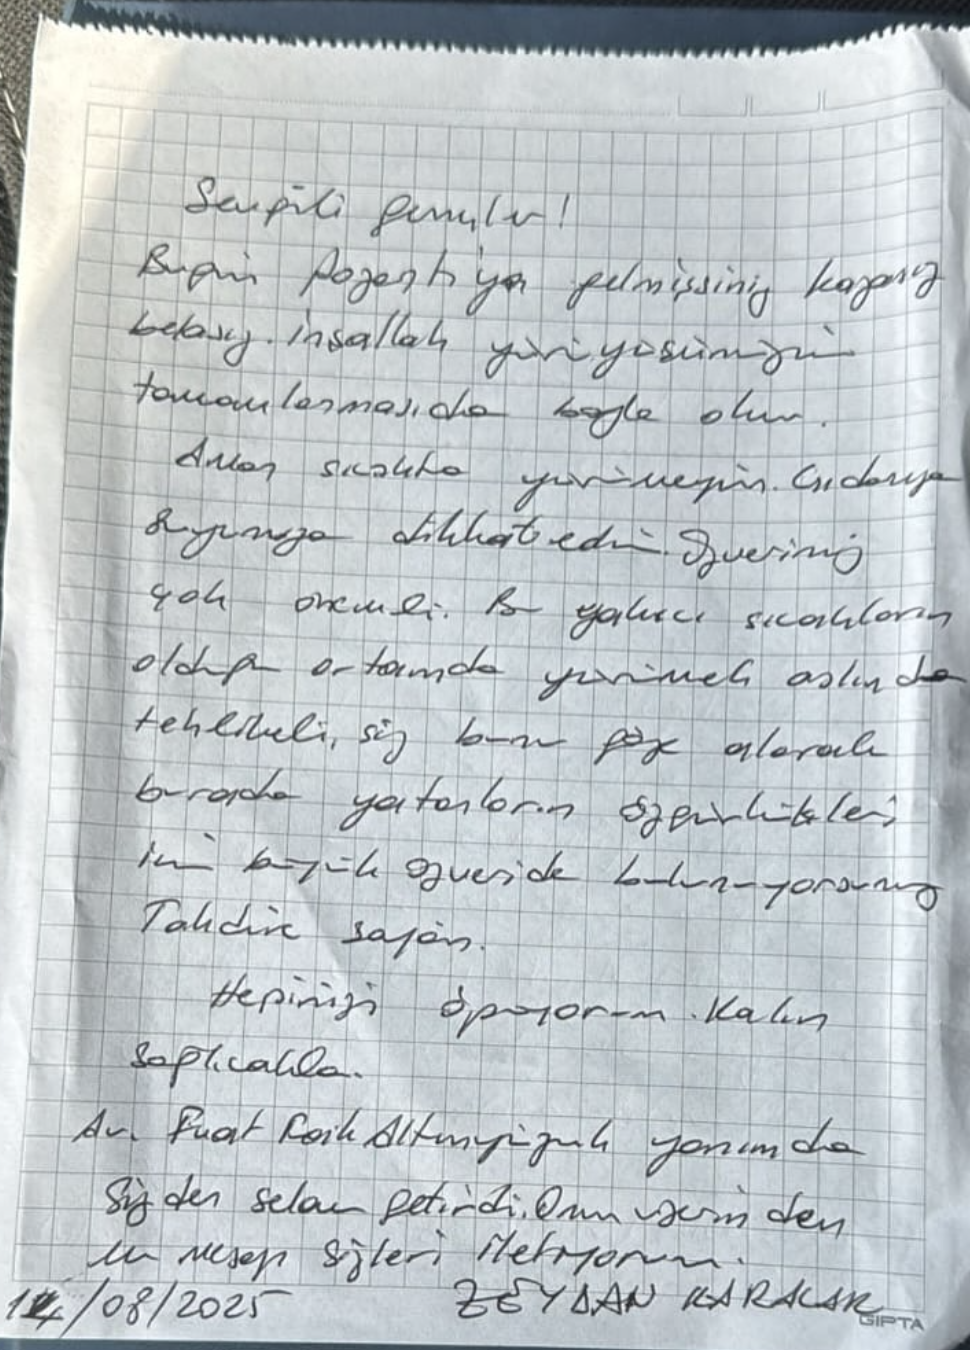 Sevgili gençler!
Bugün Pozantı'ya gelmişsiniz kazasız
belasız. inşallah yürüyüşünüzün
tamamlanması da böyle olur.
Aman sıcakta yürümeyin. Gıdanıza
suyunuza dikkat edin. Özveriniz
çok önemli. Bu yakıcı sıcakların
olduğu ortamda yürümek aslında
tehlikeli, siz bunu göze alarak
burada yatanların özgürlükleri
için büyük özveride bulunuyorsunuz
Takdire şayan.
Hepinizi öpüyorum. Kalın
sağlıcakla.
Av. Fuat Altunyüzük yanımda
Sizden selam getirdi. Onun üzerinden
mesajı sizlere iletiyorum.
14/08/2025 ZEYDAN KARALAR
GIPTA